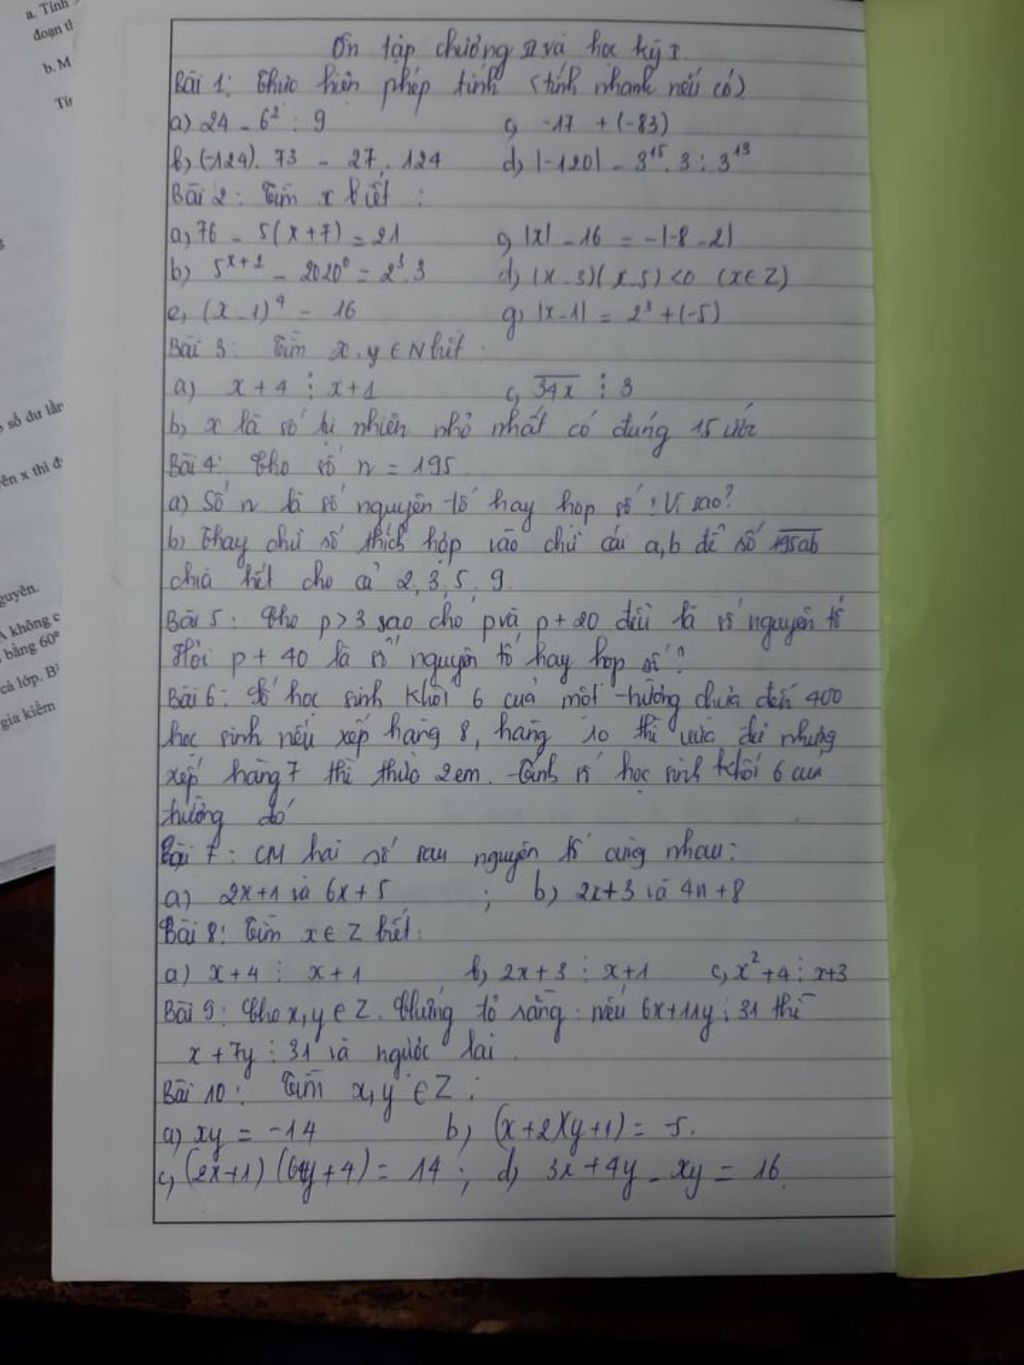 a. Tính
đoạn t
b. M
Tír
số dư lần
ên x thì đ
guyên.
A không c
bằng 60°
cả lớp. B
gia kiểm
Ôn tập chương II và học kỳ I
Bài 1: Thực hiện phép tính (tính nhanh nếu có)
a) 24 - 6² : 9 c) -17 + (-83)
b) (-124). 73 - 27. 124 d) |-120| - 3¹⁵. 3 : 3¹³
Bài 2: Tìm x biết :
a) 76 - 5(x+7) = 21 c) |x| - 16 = -|-8 - 2|
b) 5ˣ⁺² - 2020⁰ = 2³. 3 d) (x-3)(x-5) <0 (x∈Z)
e) (x-1)⁴ = 16 g) |x-1| = 2³ + (-5)
Bài 3: Tìm x, y ∈ N biết
a) x + 4 ⋮ x+1 c) 34x ⋮ 3
b) x là số tự nhiên nhỏ nhất có đúng 15 ước
Bài 4: Cho số n = 195
a) Số n là số nguyên tố hay hợp số ? Vì sao?
b) Thay chữ số thích hợp vào chữ cái a,b để số 195ab
chia hết cho cả 2, 3, 5, 9
Bài 5: Cho p>3 sao cho p và p + 20 đều là số nguyên tố
Hỏi p + 40 là số nguyên tố hay hợp số ?
Bài 6: Số học sinh khối 6 của một trường chưa đến 400
học sinh nếu xếp hàng 8, hàng 10 thì vừa đủ nhưng
xếp hàng 7 thì thừa 2 em. Tính số học sinh khối 6 của
trường đó
Bài 7: CM hai số sau nguyên tố cùng nhau:
a) 2x+1 và 6x + 5 ; b) 2x+3 và 4n + 8
Bài 8: Tìm x∈Z biết:
a) x+4 ⋮ x+1 b) 2x+3 ⋮ x+1 c) x²+4 ⋮ x+3
Bài 9: Cho x, y ∈ Z. Chứng tỏ rằng: nếu 6x+11y ⋮ 31 thì
x + 7y ⋮ 31 và ngược lại.
Bài 10: Tìm x, y ∈ Z :
a) xy = -14 b) (x+2)(y+1) = -5.
c) (2x+1) (6y+4) = 14 ; d) 3x + 4y - xy = 16.